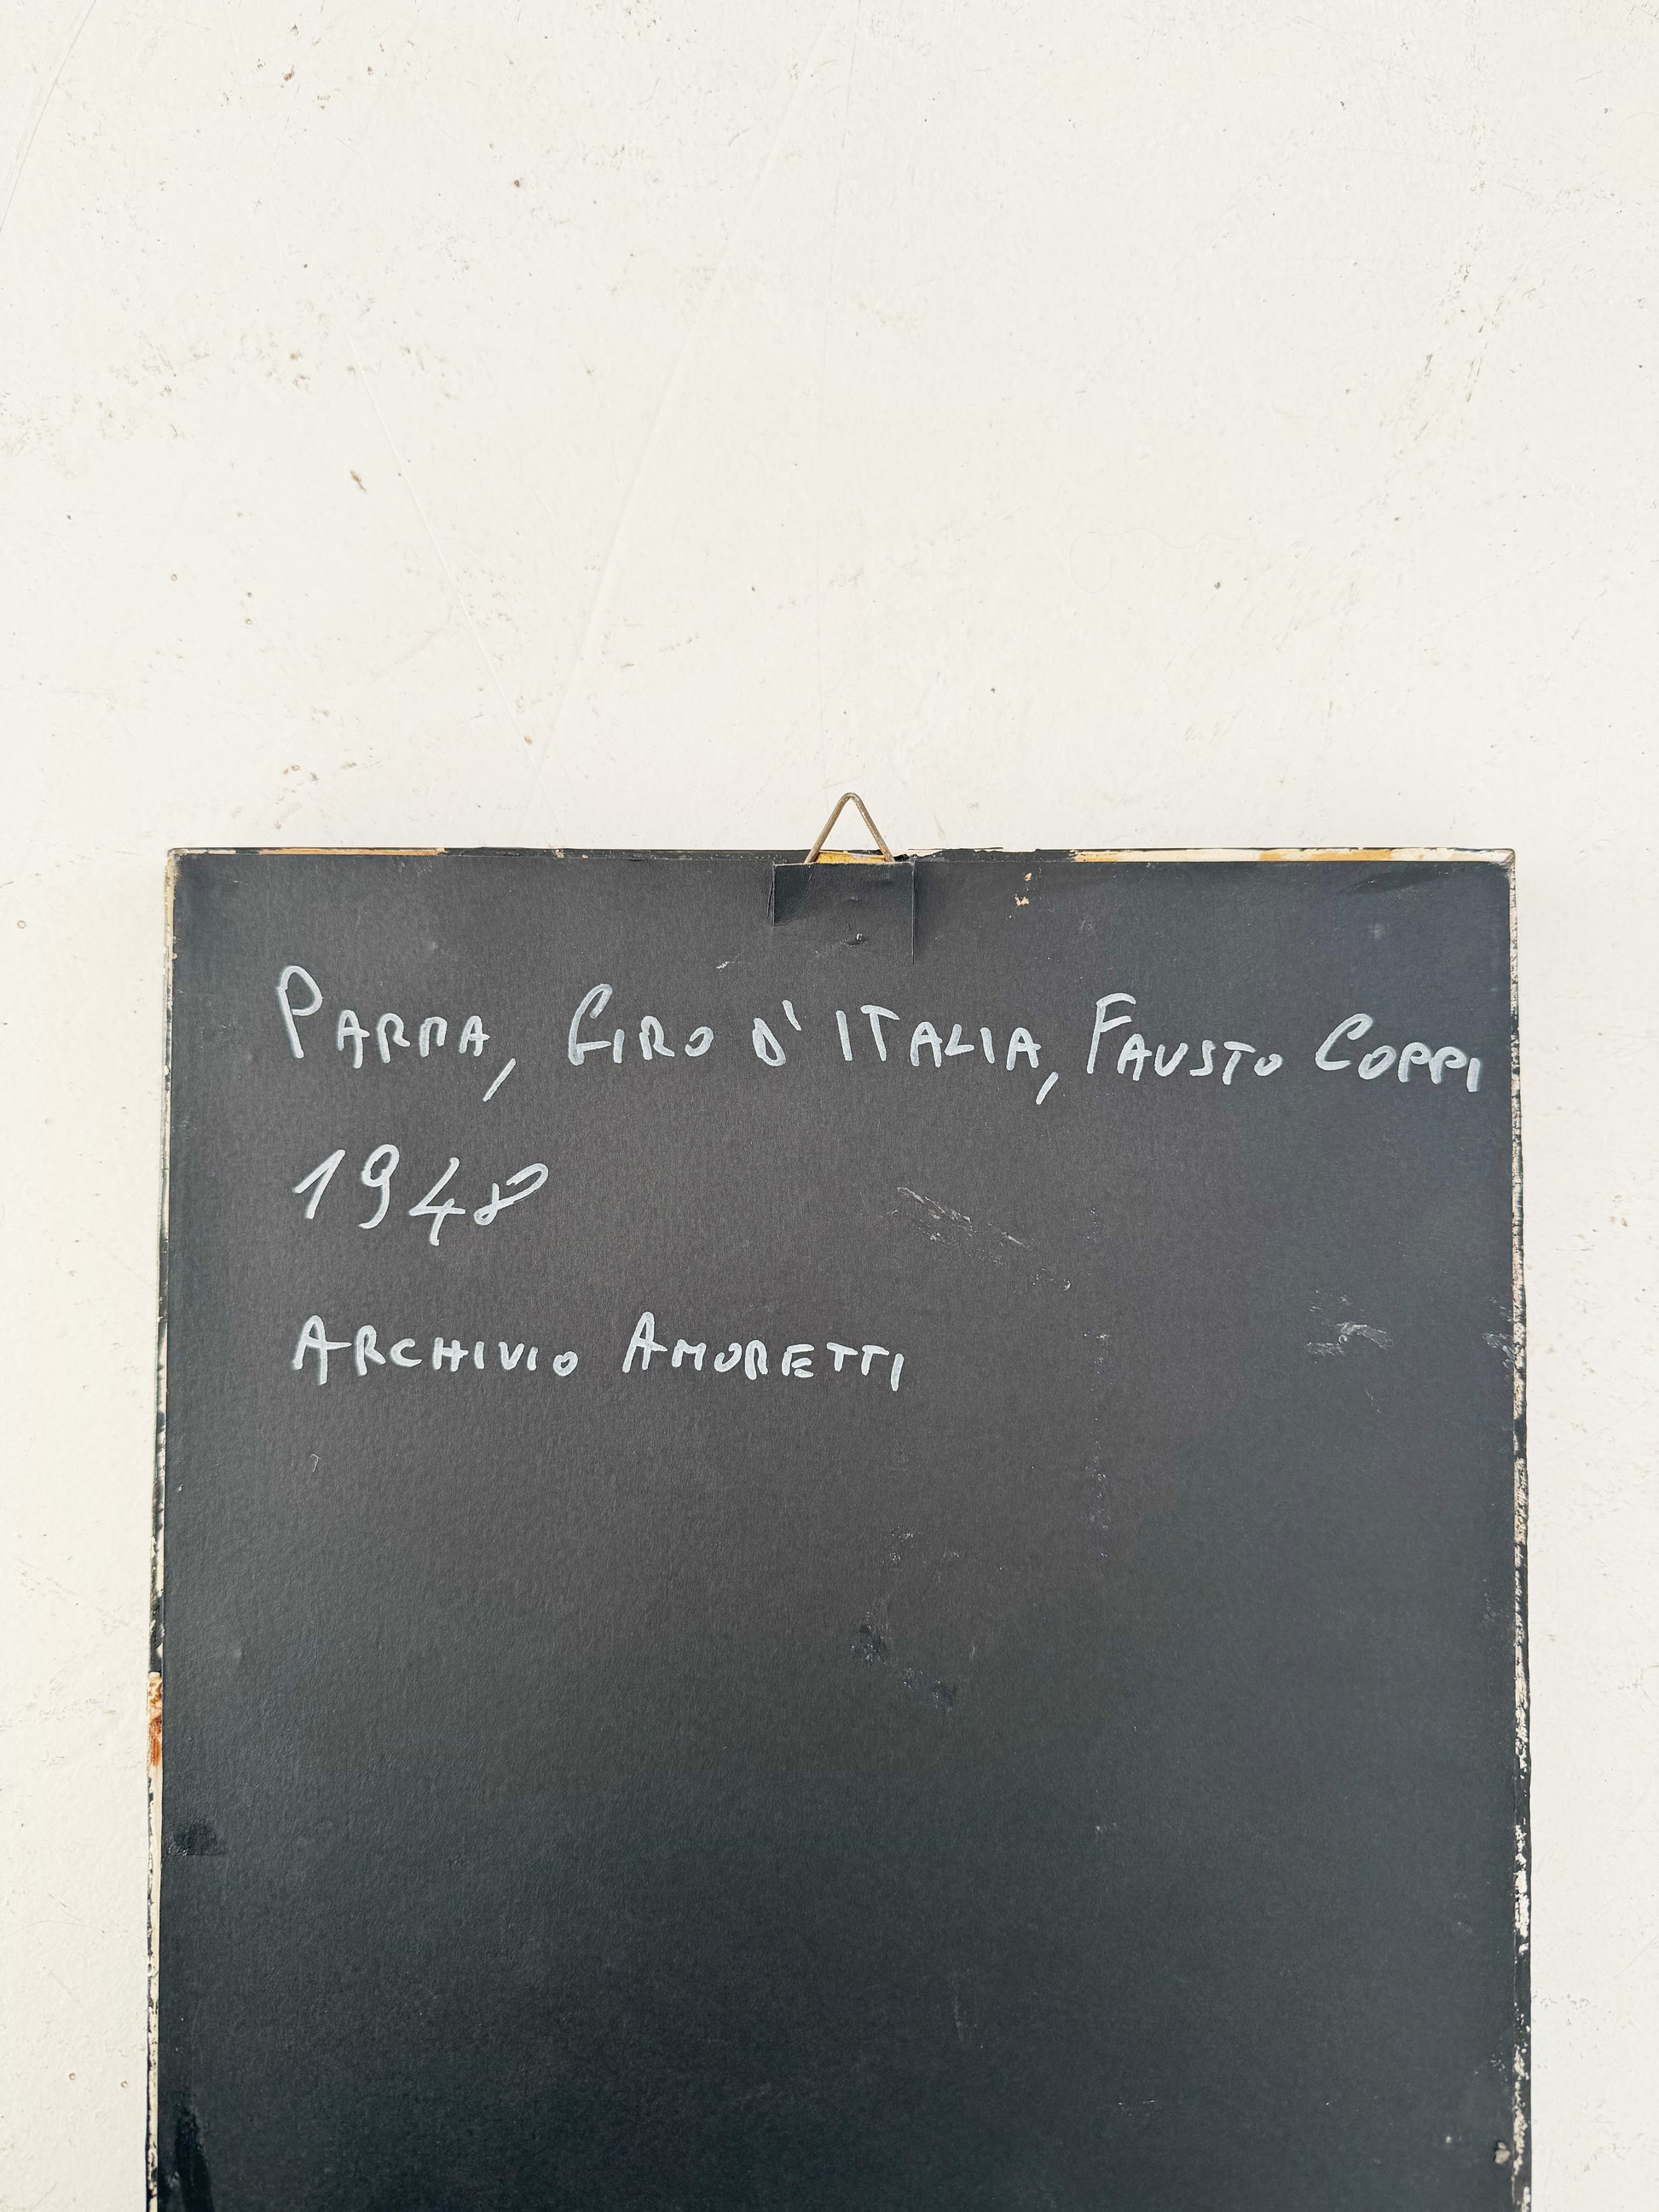 PARMA, GIRO D'ITALIA, FAUSTO COPPI
1948
ARCHIVIO AMORETTI